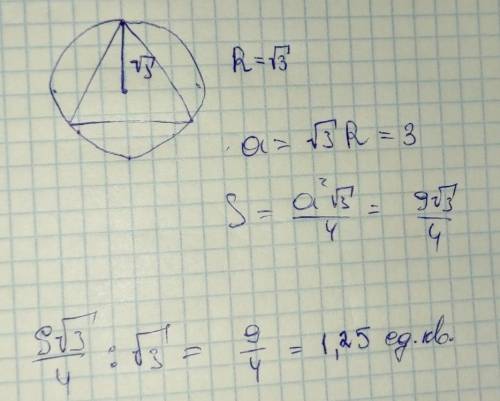 √3
R = √3
a = √3 R = 3
S = a²√3/4 = 9√3/4
9√3/4 : √3 = 9/4 = 1,25 ед. кв.